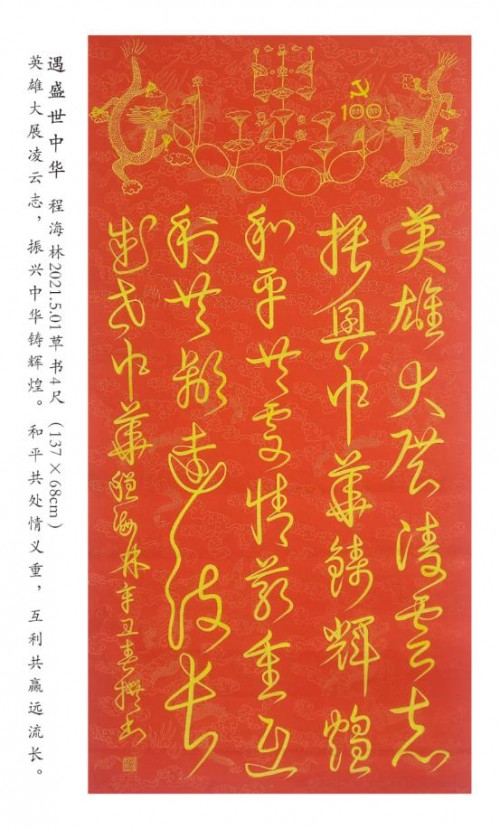 100
英雄大展凌云志
振興中華鑄輝煌
和平共处情義重互
利共赢远流长
盛世中華程海林辛丑春撰书
遇盛世中华 程海林2021.5.01草书4尺 (137×68cm)
英雄大展凌云志，振兴中华铸辉煌。和平共处情义重，互利共赢远流长。